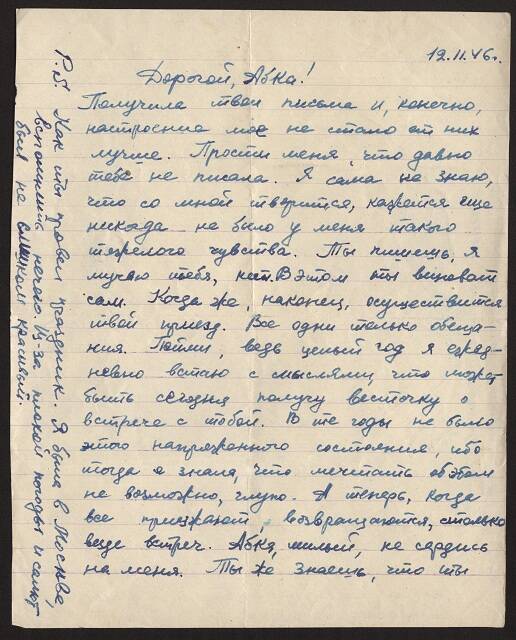 12.11.46г.
Дорогой, Абка!
Получила твои письма и, конечно,
настроение мое не стало от них
лучше. Прости меня, что давно
тебе не писала. Я сама не знаю,
что со мной творится, кажется еще
никогда не было у меня такого
тяжелого чувства. Ты пишешь, я
мучаю тебя, нет. В этом ты виноват
сам. Когда же, наконец, осуществится
твой приезд. Все одни только обеща-
ния. Пойми, ведь целый год я ежед-
невно встаю с мыслями, что может
быть сегодня получу весточку о
встрече с тобой. В те годы не было
этого напряженного состояния, ибо
тогда я знала, что мечтать об этом
не возможно, глупо. А теперь, когда
все приезжают, возвращаются, столько
веде встреч. Абка, милый, не сердись
на меня. Ты же знаешь, что ты
P.S. Как ты провел праздник. Я была в Москве,
вспомнить нечего. Из-за плохой погоды и салют
был не слишком красивый.